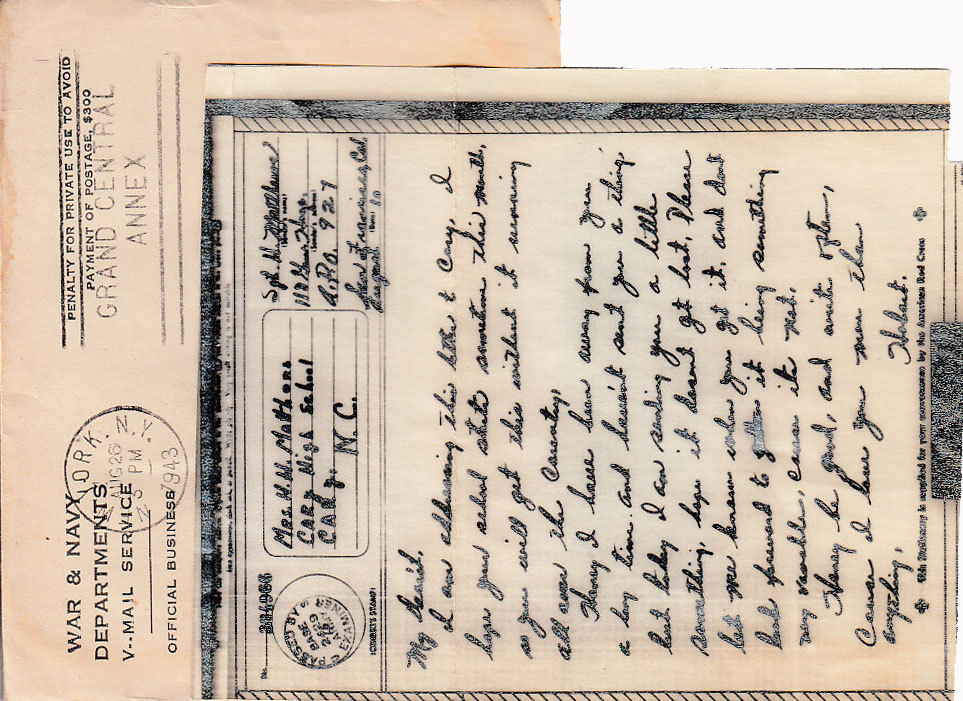 WAR & NAVY
DEPARTMENTS
V--MAIL SERVICE
OFFICIAL BUSINESS
YORK, N.Y.
AUG 26
3 PM
1943
PENALTY FOR PRIVATE USE TO AVOID
PAYMENT OF POSTAGE, $300
GRAND CENTRAL
ANNEX
No.
334966
PASSED BY
BASE
EXAMINER
(CENSOR'S STAMP)
Mrs. W. H. Mathers
Cary High School
Cary, N.C.
Sgt.
(Sender's name)
(Sender's address)
A.P.O. 927
San Francisco, Cal.
August 10
My dearest,
I am addressing this letter to Cary, I
hope your school starts sometime this month,
so you will get this without it running
all over the Country.
Honey I have been away from you
a long time and havent sent you a thing,
but today I am sending you a little
something, hope it doesnt get lost, Please
let me know when you get it, and dont
look foreward to it being something
very valuable, cause its not.
Honey be good, and write often,
Cause I love you more than
anything,
Hobart.
This Stationery is supplied for your convenience by the American Red Cross